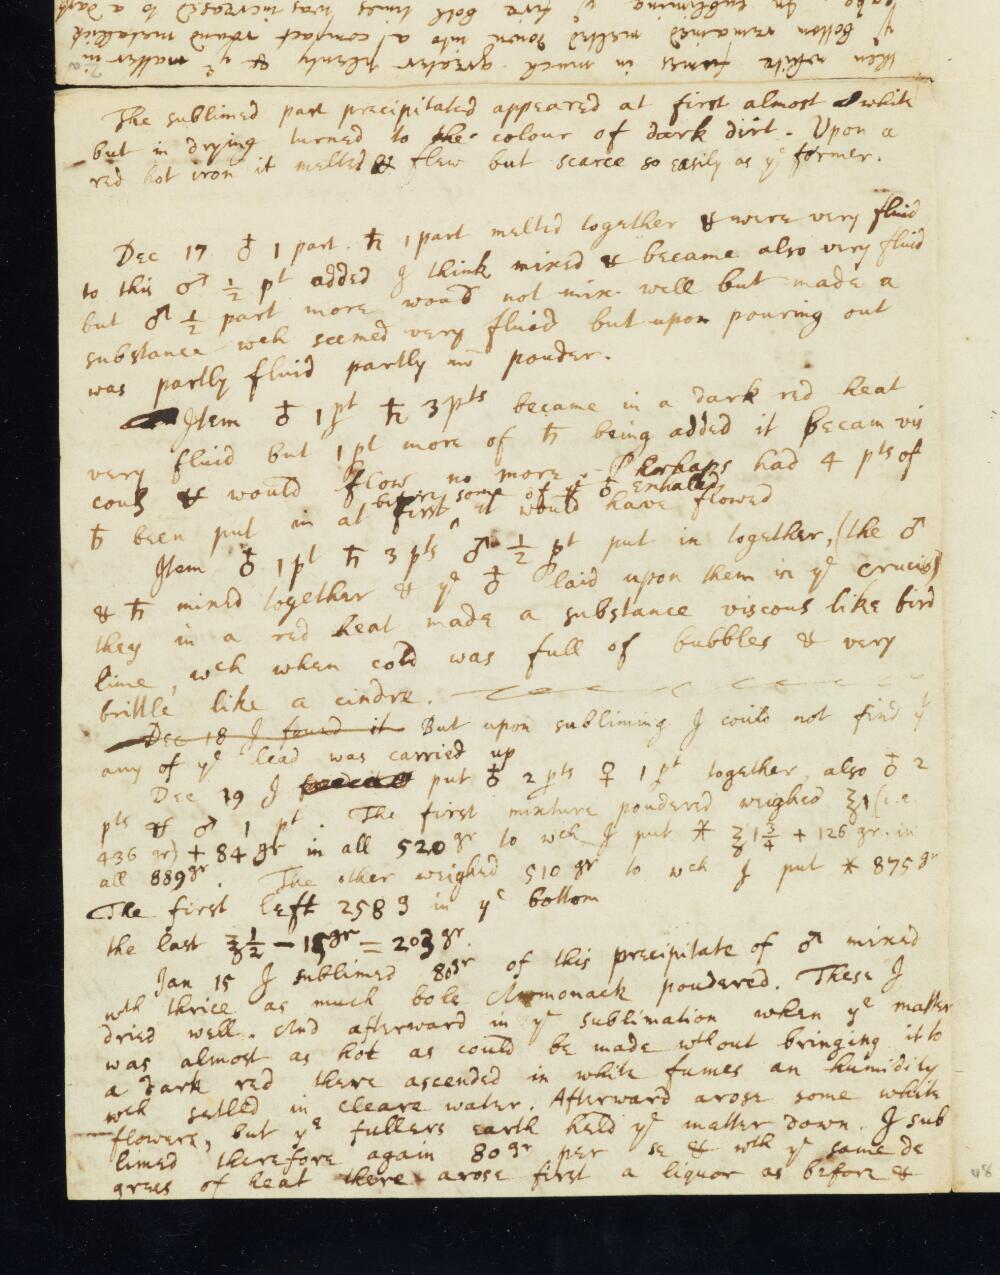 then white fumes in much greater plenty & yᵉ matter in
yᵉ bottom remained melted down into a compact round metallick
in subliming yᵉ fire both times was increased to a dark
The sublimed part precipitated appeared at first almost white
but in drying turned to the colour of dark dirt. Upon a
red hot iron it melted & flew but scarce so easily as yᵉ former.
Dec 17 ♁ 1 part ♄ 1 part melted together & were very fluid
to this ♂ ½ pᵗ added I think mixed & became also very fluid
but ♂ ½ part more would not mix well but made a
substance wch seemed very fluid but upon pouring out
was partly fluid partly in pouder.
Item ♁ 1 pᵗ ♄ 3 pᵗˢ became in a dark red heat
very fluid but 1 pᵗ more of ♄ being added it becam vis
cous & would flow no more. Perhaps had 4 pᵗˢ of
before some of yᵉ ♁ exhaled
♄ been put in at first ^ it would have flowed
Item ♁ 1 pᵗ ♄ 3 pᵗˢ ♂ ½ pᵗ put in together, (the ♂
& ♄ mixed together & yᵉ ♁ laid upon them in yᵉ crucib)
they in a red heat made a substance viscous like bird
lime, wᶜh when cold was full of bubbles & very
brittle like a cindre.
Dec 18 I found it But upon subliming I could not find yᵗ
any of yᵉ lead was carried up
Dec 19 I put ♁ 2 pᵗˢ ♀ 1 pᵗ together, also ♁ 2
pᵗˢ & ♂ 1 pᵗ. The first mixture poudered weighed ℥1 (i.e.
436 gr) + 84 gr in all 520 gr to wch I put ✶ ℥1¾ + 126 gr. in
all 889 gr. The other weighed 510 gr to wch I put ✶ 875 gr
The first left 258 in yᵉ bottom
the last ℥½ − 15 gr = 203 gr.
Jan 15 I sublimed 80 gr of this precipitate of ♂ mixed
wth thrice as much bole Armonack poudered. These I
dried well. And afterward in yᵉ sublimation when yᵉ matter
was almost as hot as could be made wthout bringing it to
a dark red there ascended in white fumes an humidity
wch setled in cleare water. Afterward arose some white
flowers, but yᵉ fullers earth held yᵉ matter down. I sub
limed therefore again 80 gr per se & wth yᵉ same de
grees of heat there arose first a liquor as before &
48